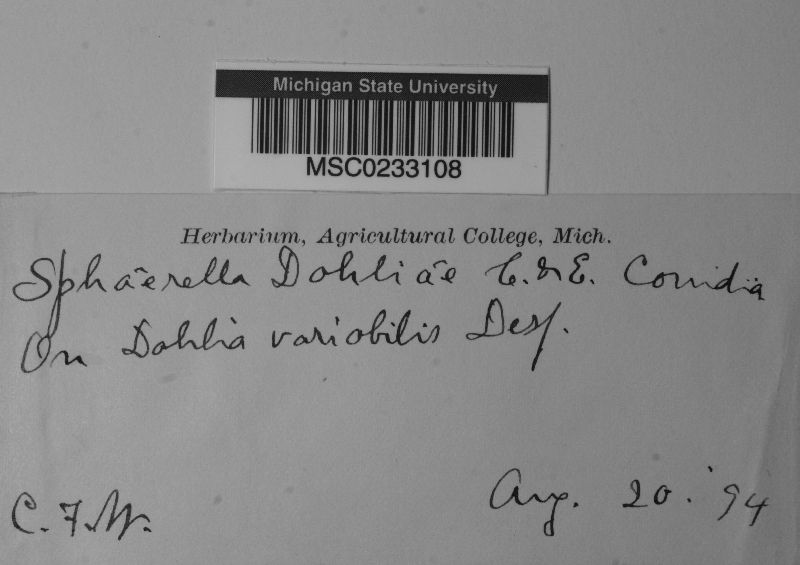 Michigan State University
MSC0233108
Herbarium, Agricultural College, Mich.
Sphaerella Dahliae C. & E. Conidia
On Dahlia variabilis Desf.
C. F. W. Aug. 20. '94